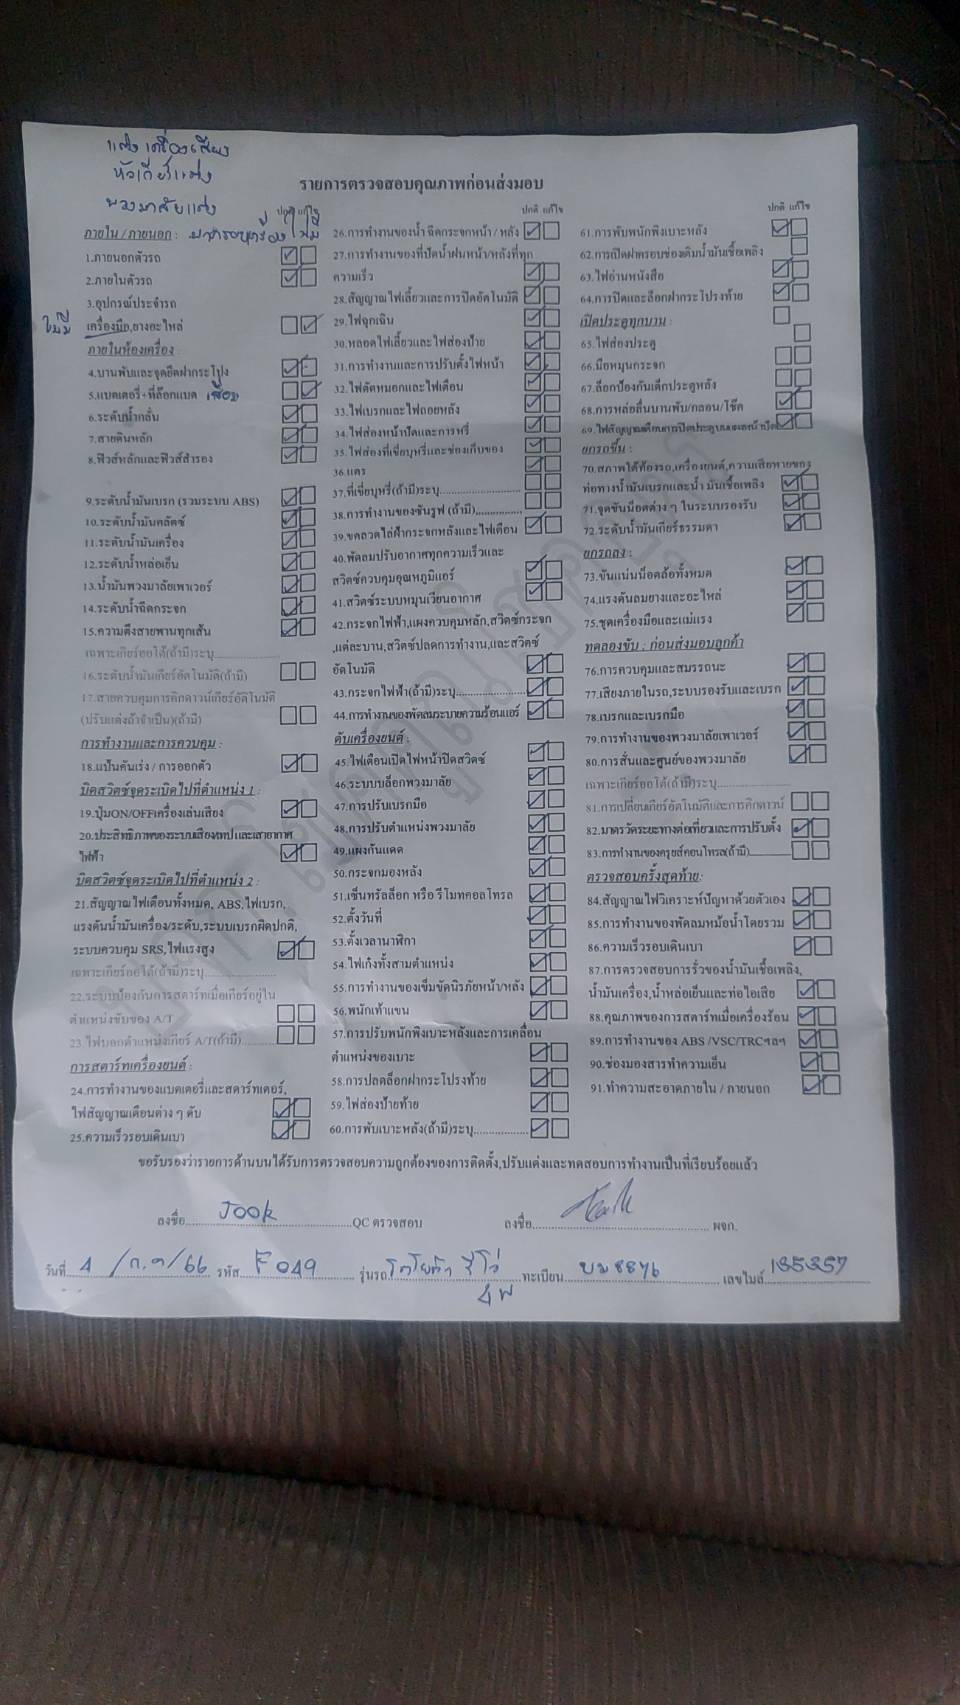 แต่ง เครื่องเสียง
หัวเกียร์แต่ง
พวงมาลัยแต่ง
รายการตรวจสอบคุณภาพก่อนส่งมอบ
ปกติ แก้ไข
ภายใน / ภายนอก : ไม่มี
1.ภายนอกตัวรถ
2.ภายในตัวรถ
3.อุปกรณ์ประจำรถ
ไม่มี เครื่องมือ,ยางอะไหล่
ภายในห้องเครื่อง
4.บานพับและจุดยึดฝากระโปง
5.แบตเตอรี่+ที่ล๊อกแบต เสื่อม
6.ระดับน้ำกลั่น
7.สายดินหลัก
8.ฟิวส์หลักและฟิวส์สำรอง
9.ระดับน้ำมันเบรก (รวมระบบ ABS)
10.ระดับน้ำมันคลัตช์
11.ระดับน้ำมันเครื่อง
12.ระดับน้ำหล่อเย็น
13.น้ำมันพวงมาลัยเพาเวอร์
14.ระดับน้ำฉีดกระจก
15.ความตึงสายพานทุกเส้น
เฉพาะเกียร์ออโต้(ถ้ามี)ระบุ
16.ระดับน้ำมันเกียร์อัตโนมัติ(ถ้ามี)
17.สายควบคุมการคิกดาวน์เกียร์อัตโนมัติ
(ปรับแต่งถ้าจำเป็น)(ถ้ามี)
การทำงานและการควบคุม :
18.แป้นคันเร่ง / การออกตัว
บิดสวิตช์จุดระเบิดไปที่ตำแหน่ง 1 :
19.ปุ่มON/OFFเครื่องเล่นเสียง
20.ประสิทธิภาพของระบบเสียงเทป และเสาอากาศ
ไฟฟ้า
บิดสวิตช์จุดระเบิดไปที่ตำแหน่ง 2 :
21.สัญญาณไฟเตือนทั้งหมด, ABS,ไฟเบรก,
แรงดันน้ำมันเครื่อง/ระดับ,ระบบเบรกผิดปกติ,
ระบบควบคุม SRS,ไฟแรงสูง
เฉพาะเกียร์ออโต้(ถ้ามี)ระบุ
22.ระบบป้องกันการสตาร์ทเมื่อเกียร์อยู่ใน
ตำแหน่งขับของ A/T
23.ไฟบอกตำแหน่งเกียร์ A/T(ถ้ามี)
การสตาร์ทเครื่องยนต์ :
24.การทำงานของแบตเตอรี่และสตาร์ทเตอร์,
ไฟสัญญาณเตือนต่าง ๆ ดับ
25.ความเร็วรอบเดินเบา
ปกติ แก้ไข
26.การทำงานของน้ำฉีดกระจกหน้า/หลัง
27.การทำงานของที่ปัดน้ำฝนหน้า/หลังที่ทุก
ความเร็ว
28.สัญญาณไฟเลี้ยวและการปิดอัตโนมัติ
29.ไฟฉุกเฉิน
30.หลอดไฟเลี้ยวและไฟส่องป้าย
31.การทำงานและการปรับตั้งไฟหน้า
32.ไฟตัดหมอกและไฟเตือน
33.ไฟเบรกและไฟถอยหลัง
34.ไฟส่องหน้าปัดและการหรี่
35.ไฟส่องที่เขี่ยบุหรี่และช่องเก็บของ
36.แตร
37.ที่เขี่ยบุหรี่(ถ้ามี)ระบุ
38.การทำงานของซันรูฟ (ถ้ามี)
39.ขดลวดไล่ฝ้ากระจกหลังและไฟเตือน
40.พัดลมปรับอากาศทุกความเร็วและ
สวิตช์ควบคุมอุณหภูมิแอร์
41.สวิตช์ระบบหมุนเวียนอากาศ
42.กระจกไฟฟ้า,แผงควบคุมหลัก,สวิตช์กระจก
,แต่ละบาน,สวิตช์ปลดการทำงาน,และสวิตช์
อัตโนมัติ
43.กระจกไฟฟ้า(ถ้ามี)ระบุ
44.การทำงานของพัดลมระบายความร้อนแอร์
ดับเครื่องยนต์ :
45.ไฟเตือนเปิดไฟหน้าปิดสวิตช์
46.ระบบบล็อกพวงมาลัย
47.การปรับเบรกมือ
48.การปรับตำแหน่งพวงมาลัย
49.แผงกันแดด
50.กระจกมองหลัง
51.เซ็นทรัลล็อก หรือ รีโมทคอลโทรล
52.ตั้งวันที่
53.ตั้งเวลานาฬิกา
54.ไฟเก๋งทั้งสามตำแหน่ง
55.การทำงานของเข็มขัดนิรภัยหน้า/หลัง
56.พนักเท้าแขน
57.การปรับพนักพิงเบาะหลังและการเคลื่อน
ตำแหน่งของเบาะ
58.การปลดล็อกฝากระโปรงท้าย
59.ไฟส่องป้ายท้าย
60.การพับเบาะหลัง(ถ้ามี)ระบุ
ปกติ แก้ไข
61.การพับพนักพิงเบาะหลัง
62.การเปิดฝาครอบช่องเติมน้ำมันเชื้อเพลิง
63.ไฟอ่านหนังสือ
64.การปิดและล็อกฝากระโปรงท้าย
เปิดประตูทุกบาน :
65.ไฟส่องประตู
66.มือหมุนกระจก
67.ล็อกป้องกันเด็กประตูหลัง
68.การหล่อลื่นบานพับ/กลอน/โช๊ค
69.ไฟสัญญาณเตือนการปิดประตู
ยกรถขึ้น :
70.สภาพใต้ท้องรถ,เครื่องยนต์,ความเสียหายของ
ท่อทางน้ำมันเบรกและน้ำมันเชื้อเพลิง
71.จุดขันน็อตต่าง ๆ ในระบบรองรับ
72.ระดับน้ำมันเกียร์ธรรมดา
ยกรถลง :
73.ขันแน่นน็อตล้อทั้งหมด
74.แรงดันลมยางและอะไหล่
75.ชุดเครื่องมือและแม่แรง
ทดลองขับ : ก่อนส่งมอบลูกค้า
76.การควบคุมและสมรรถนะ
77.เสียงภายในรถ,ระบบรองรับและเบรก
78.เบรกและเบรกมือ
79.การทำงานของพวงมาลัยเพาเวอร์
80.การสั่นและศูนย์ของพวงมาลัย
เฉพาะเกียร์ออโต้(ถ้ามี)ระบุ
81.การเปลี่ยนเกียร์อัตโนมัติและการคิกดาวน์
82.มาตรวัดระยะทางต่อเที่ยวและการปรับตั้ง
83.การทำงานของครูยส์คอนโทรล(ถ้ามี)
ตรวจสอบครั้งสุดท้าย:
84.สัญญาณไฟวิเคราะห์ปัญหาด้วยตัวเอง
85.การทำงานของพัดลมหม้อน้ำโดยรวม
86.ความเร็วรอบเดินเบา
87.การตรวจสอบการรั่วของน้ำมันเชื้อเพลิง,
น้ำมันเครื่อง,น้ำหล่อเย็นและท่อไอเสีย
88.คุณภาพของการสตาร์ทเมื่อเครื่องร้อน
89.การทำงานของ ABS /VSC/TRCฯลฯ
90.ช่องมองสารทำความเย็น
91.ทำความสะอาดภายใน / ภายนอก
ขอรับรองว่ารายการด้านบนได้รับการตรวจสอบความถูกต้องของการติดตั้ง,ปรับแต่งและทดสอบการทำงานเป็นที่เรียบร้อยแล้ว
ลงชื่อ Jook QC ตรวจสอบ ลงชื่อ ผจก.
วันที่ 4 / ก.ค / 66 รหัส F 049 รุ่นรถ โตโยต้า รีโว่ ทะเบียน บม 8876 เลขไมล์ 135357